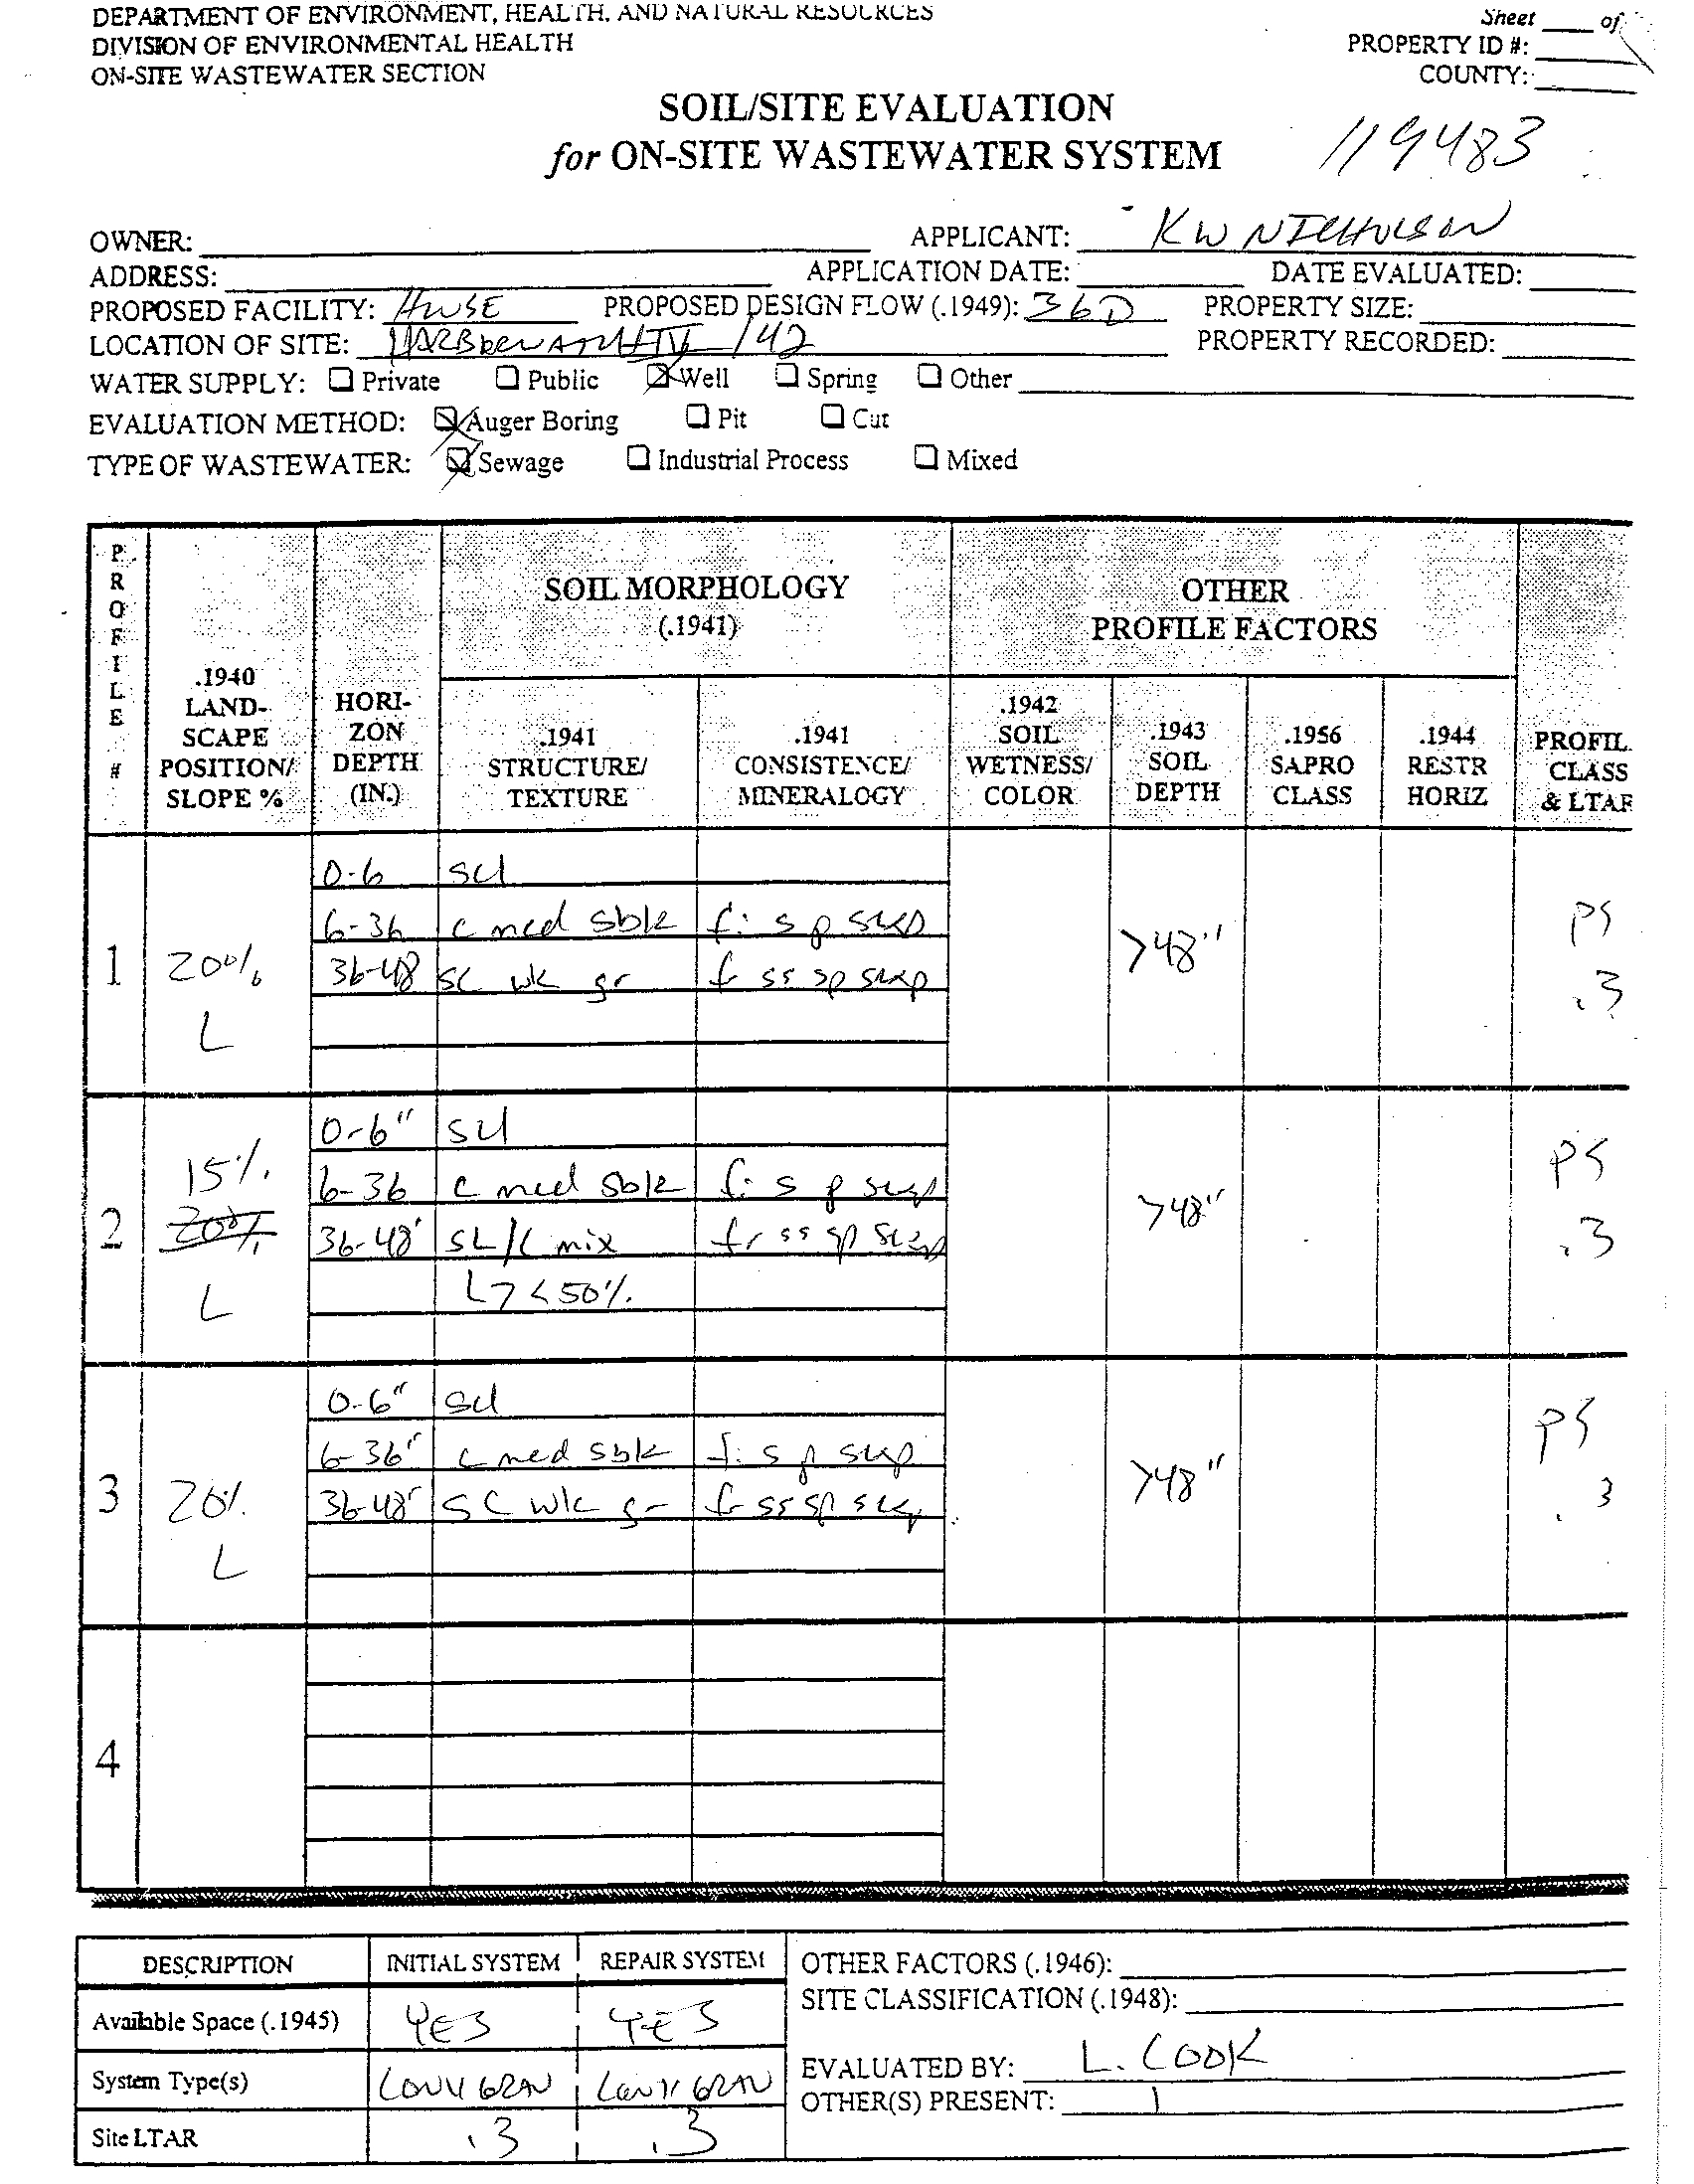 DEPARTMENT OF ENVIRONMENT, HEALTH, AND NATURAL RESOURCES
DIVISION OF ENVIRONMENTAL HEALTH
ON-SITE WASTEWATER SECTION
Sheet ____ of
PROPERTY ID #:
COUNTY:
SOIL/SITE EVALUATION
for ON-SITE WASTEWATER SYSTEM
119483
OWNER: APPLICANT: KW NICHOLSON
ADDRESS: APPLICATION DATE: DATE EVALUATED:
PROPOSED FACILITY: HOUSE PROPOSED DESIGN FLOW (.1949): 360 PROPERTY SIZE:
LOCATION OF SITE: 142 PROPERTY RECORDED:
WATER SUPPLY: ☐ Private ☐ Public ☒ Well ☐ Spring ☐ Other
EVALUATION METHOD: ☒ Auger Boring ☐ Pit ☐ Cut
TYPE OF WASTEWATER: ☒ Sewage ☐ Industrial Process ☐ Mixed
PROFILE #
.1940 LAND-SCAPE POSITION/ SLOPE %
HORI-ZON DEPTH (IN.)
SOIL MORPHOLOGY (.1941)
.1941 STRUCTURE/ TEXTURE
.1941 CONSISTENCE/ MINERALOGY
OTHER PROFILE FACTORS
.1942 SOIL WETNESS/ COLOR
.1943 SOIL DEPTH
.1956 SAPRO CLASS
.1944 RESTR HORIZ
PROFIL. CLASS & LTAR
1 20% L >48" PS .3
0-6 scl
6-36 c med sbk fi s p sexp
36-48 sc wk gr fr ss sp sexp
2 15% 20% L >48" PS .3
0-6" scl
6-36 c med sbk fi s p sexp
36-48" SL/C mix fr ss sp sexp
L> < 50%
3 20% L >48" PS .3
0-6" scl
6-36" c med sbk fi s p sexp
36-48" SC wk gr fr ss sp sexp
4
DESCRIPTION INITIAL SYSTEM REPAIR SYSTEM
Available Space (.1945) YES YES
System Type(s) CONV GRAV CONV GRAV
Site LTAR .3 .3
OTHER FACTORS (.1946):
SITE CLASSIFICATION (.1948):
EVALUATED BY: L. COOK
OTHER(S) PRESENT: